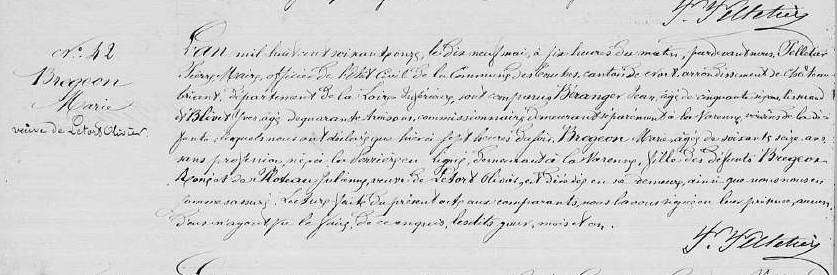 P. Pelletier
N° 42
Brogeon
Marie
veuve de Letort Olivier
L'an mil huit cent soixante onze, le dix neuf mai, à six heures du matin, pardevant nous, Pelletier
Pierre, Maire, officier de l'état Civil de la Commune des Touches, canton de Nort, arrondissement de Chateau
briant, département de la Loire Inférieure, sont comparus Béranger Jean, âgé de cinquante
âgé de quarante trois ans, commissionnaire, demeurant séparément à la Varenne, voisins de la dé
funte, lesquels nous ont déclaré que hier à sept heures du soir, Brogeon Marie, âgée de soixante seize ans,
sans profession, née à la en Ligné, demeurant à la Varenne, fille des défunts Brogeon
François et de Moteau Julienne, veuve de Letort Olivier, est décédée en sa demeure, ainsi que nous nous en
sommes assuré. Lecture faite du présent acte aux comparants, nous l'avons signé en leur présence, aucun
d'eux n'ayant pu le faire, de ce enquis, lesdits jour, mois et an.
P. Pelletier